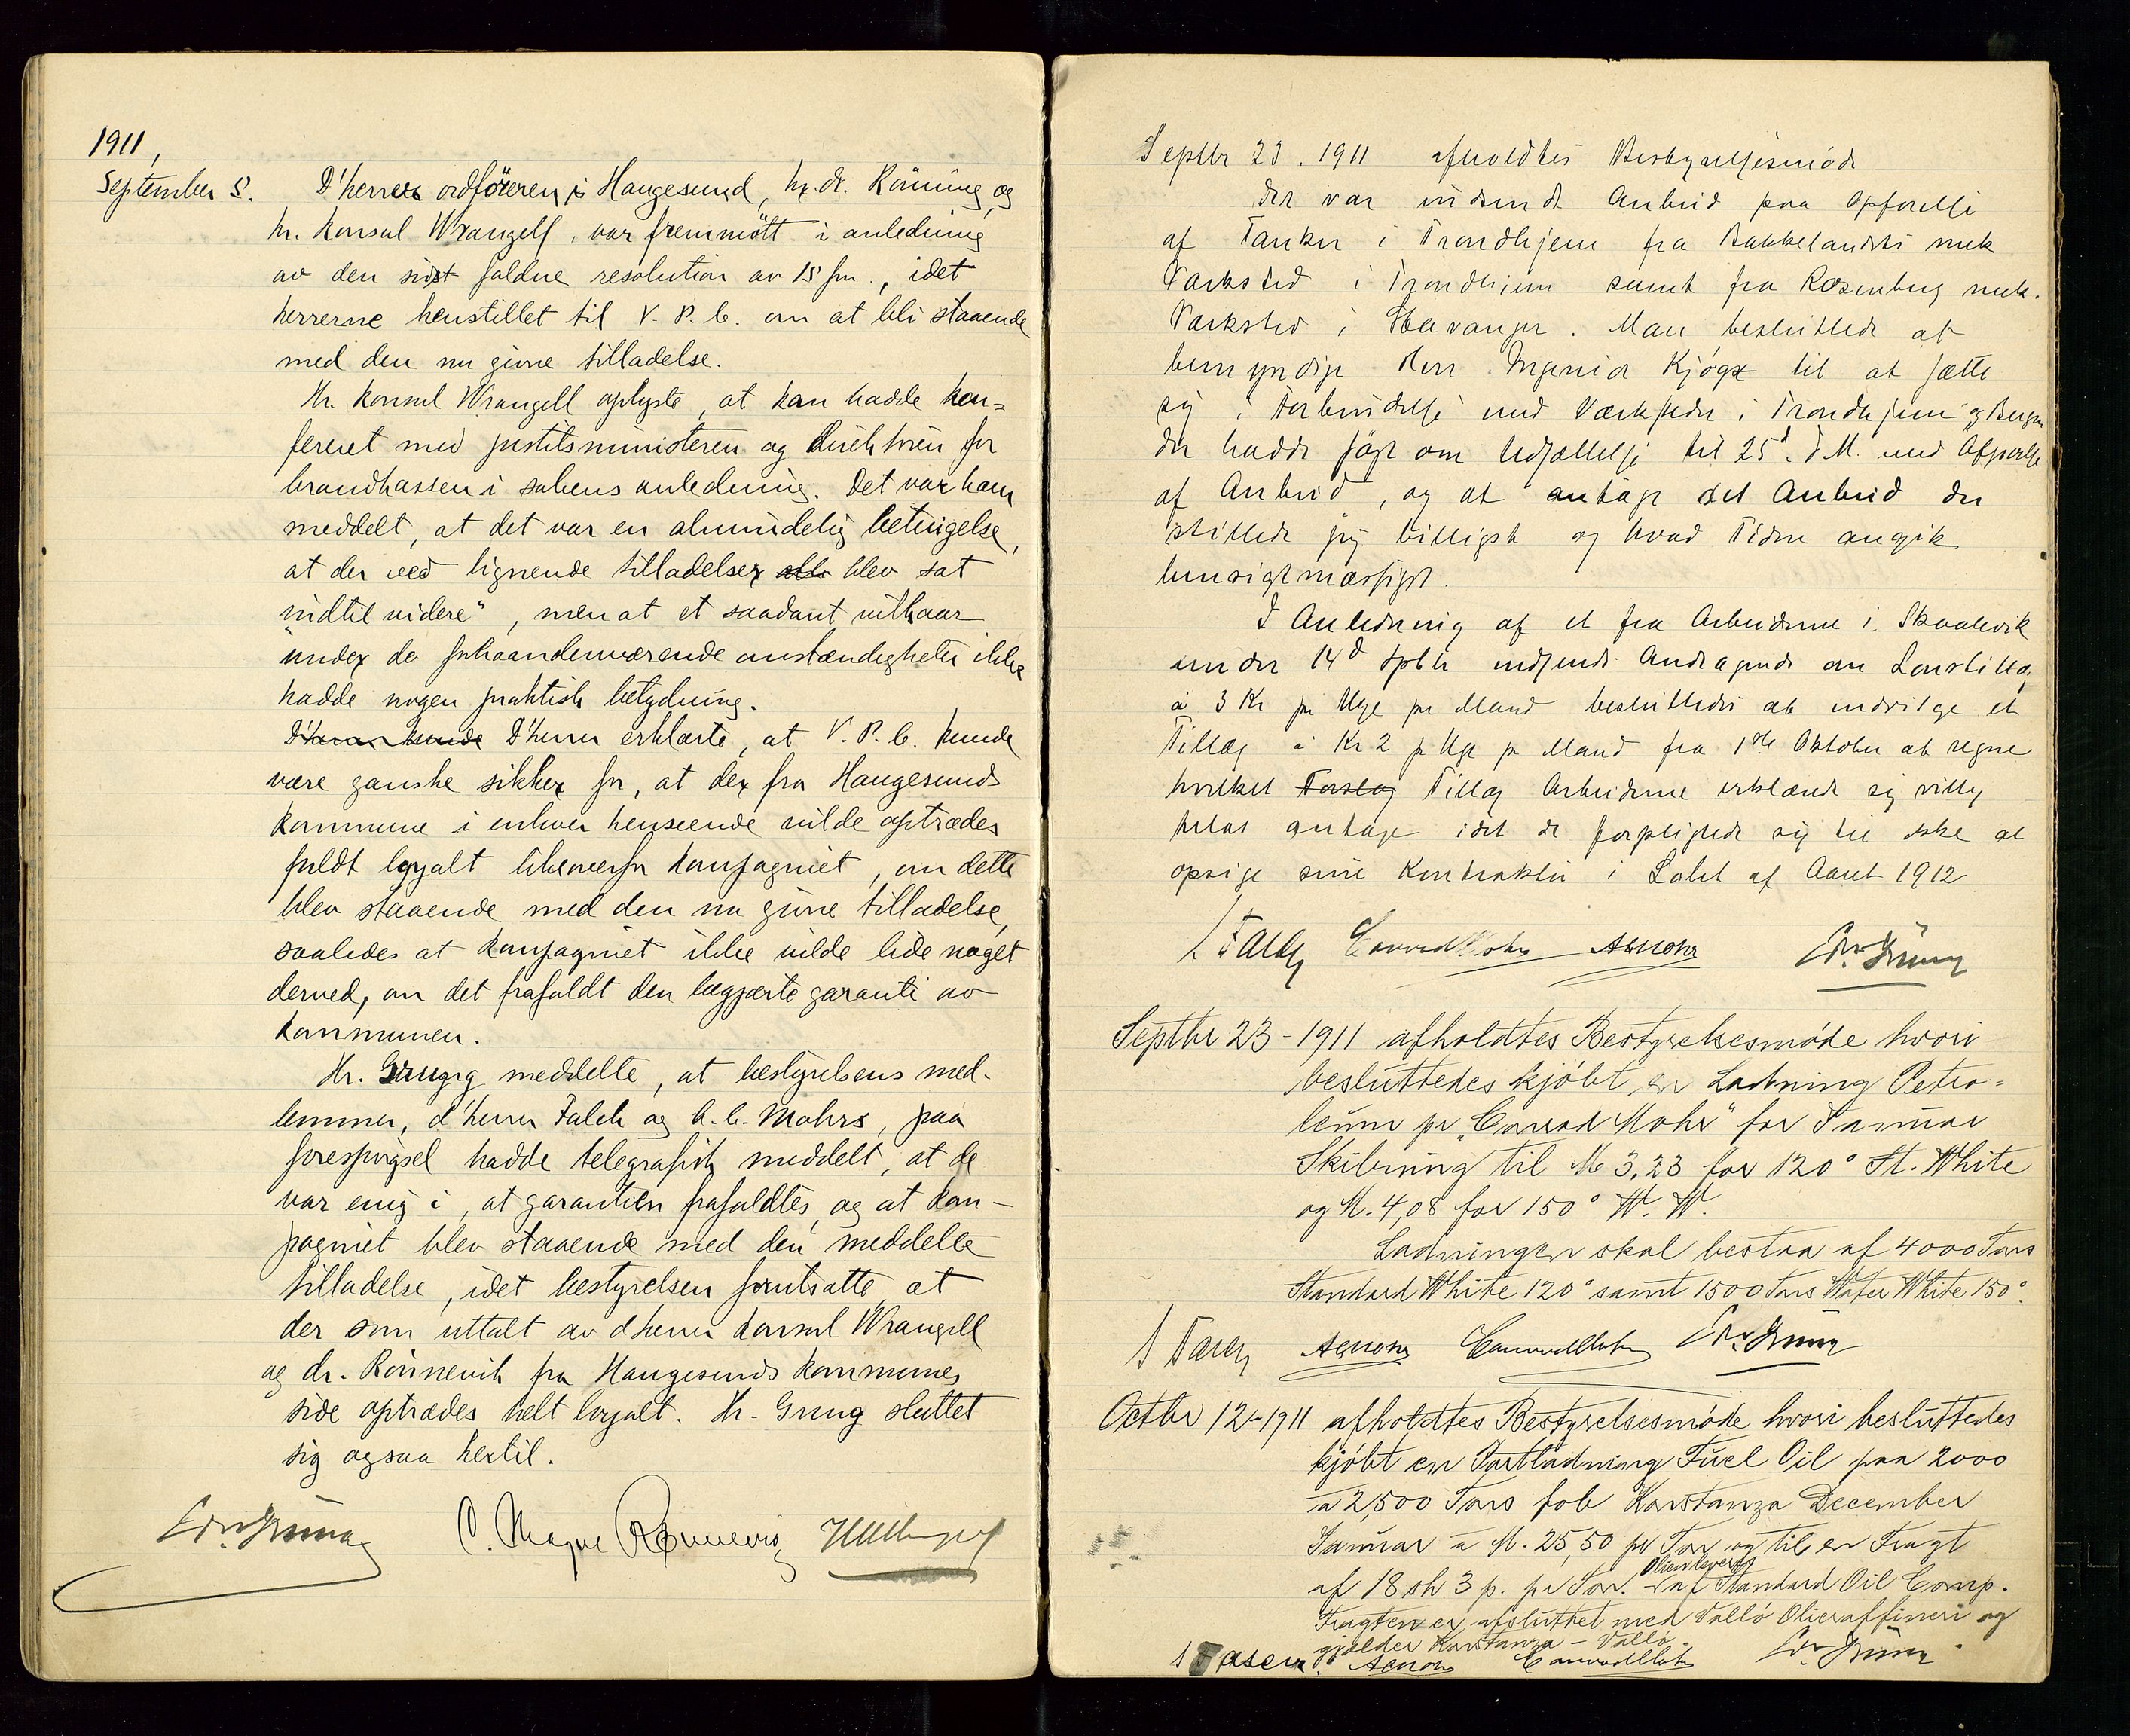 1911,
September 5. D'herrer ordföreren i Haugesund, hr. dr. Rönning, og
hr. konsul Wrangell, var fremmött i anledning
av den sidst faldne resolution av 15 fm., idet
herrerne henstillet til V. P. C. om at bli staaende
med den nu givne tilladelse.
Hr. konsul Wrangell oplyste, at han hadde kon=
fereret med justitsministeren og direktören for
brandkassen i sakens anledning. Det var ham
meddelt, at det var en almindelig betingelse,
at der ved lignende tilladelser blev sat
"indtil videre", men at et saadant vilkaar
under de forhaandenværende omstændigheter ikke
hadde nogen praktisk betydning.
D'herrer kunde D'herrer erklærte, at V. P. C. kunde
være ganske sikker for, at der fra Haugesunds
kommune i enhver henseende vilde optrædes
fuldt loyalt likeoverfor kompagniet, om dette
blev staaende med den nu givne tilladelse,
saaledes at kompagniet ikke vilde lide noget
derved, om det frafaldt den begjærte garanti av
kommunen.
Hr. Grung meddelte, at bestyrelsens med-
lemmer, d'herrer Falch og A. C. Mohrs, paa
forespörgsel hadde telegrafisk meddelt, at de
var enig i, at garantien frafaldtes, og at kom-
pagniet blev staaende med den meddelte
tilladelse, idet bestyrelsen forutsatte at
der som uttalt av d'herrer konsul Wrangell
og dr. Rönnevik fra Haugesunds kommunes
side optrædes helt loyalt. Hr. Grung sluttet
sig ogsaa hertil.
Chr. Grung C. Magne Rönnevig HWrangell
Septbr 23. 1911 afholdtes Bestyrelsesmöde
Der var indsendt Anbud paa Opförelse
af Tanker i Trondhjem fra Bakkelandets mek
Værksted i Trondhjem samt fra Rosenberg mek.
Værksted i Stavanger. Man besluttede at
bemyndige Herr Ingeniör Kjöge til at sætte
sig i Forbindelse med Værksteder i Trondhjem og Bergen
der havde sögt om Udsættelse til 25d. d.M. med Afgivelse
af Anbud, og at antage det Anbud der
stillede sig billigst og hvad Tiden angik
hensigtmæssigst.
I Anledning af et fra Arbeiderne i Skaalevik
under 14d Sptbr indsendt Andragende om Lönstillæg
a 3 Kr pr Uge pr Mand besluttedes at indvilge et
Tillæg a Kr 2 pr Uge pr Mand fra 1ste Oktober at regne
hvilket Forslag Tillæg Arbeiderne erklærede sig villig
til at antage idet de forpligtede sig til ikke at
opsige sine Kontrakter i Löbet af Aaret 1912
J Falch Conrad Mohr ACMohr Chr. Grung
Septbr 23-1911 afholdtes Bestyrelsesmöde hvori
besluttedes kjöbt en Ladning Petro=
leum pr „Conrad Mohr" for Januar
Skibning til M 3,23 for 120° St. White
og M. 4,08 for 150° W. W.
Ladningen skal bestaa af 4000 Tons
Standard White 120° samt 1500 Tons Water White 150°.
J Falch ACMohr Conrad Mohr Chr. Grung
Octbr 12-1911 afholdtes Bestyrelsesmöde hvori besluttedes
kjöbt en Partladning Fuel Oil paa 2000
a 2,500 Tons fob Konstanza December
Januar a M. 25,50 pr Ton og til en Fragt
Olien leveres
af 18 sh 3 p. pr Ton. af Standard Oil Comp.
Fragten er afsluttet med Vallö Olieraffineri og
gjælder Konstanza - Vallö.
J Falch ACMohr Conrad Mohr Chr. Grung